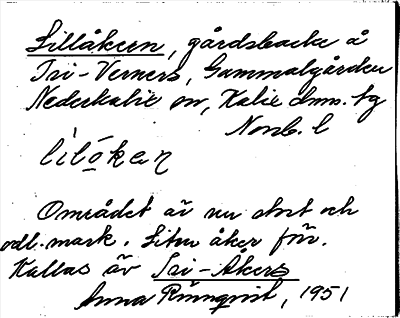 Lillåkern, gårdsbacke å
Tri-Verners, Gammalgården
Nederkalix sn, Kalix dms. tg
Norrb. l
lilōken
Området är nu slut och
odl. mark. Liten åker förr.
Kallas äv Tri-Åkers
Anna Rönnqvist, 1951